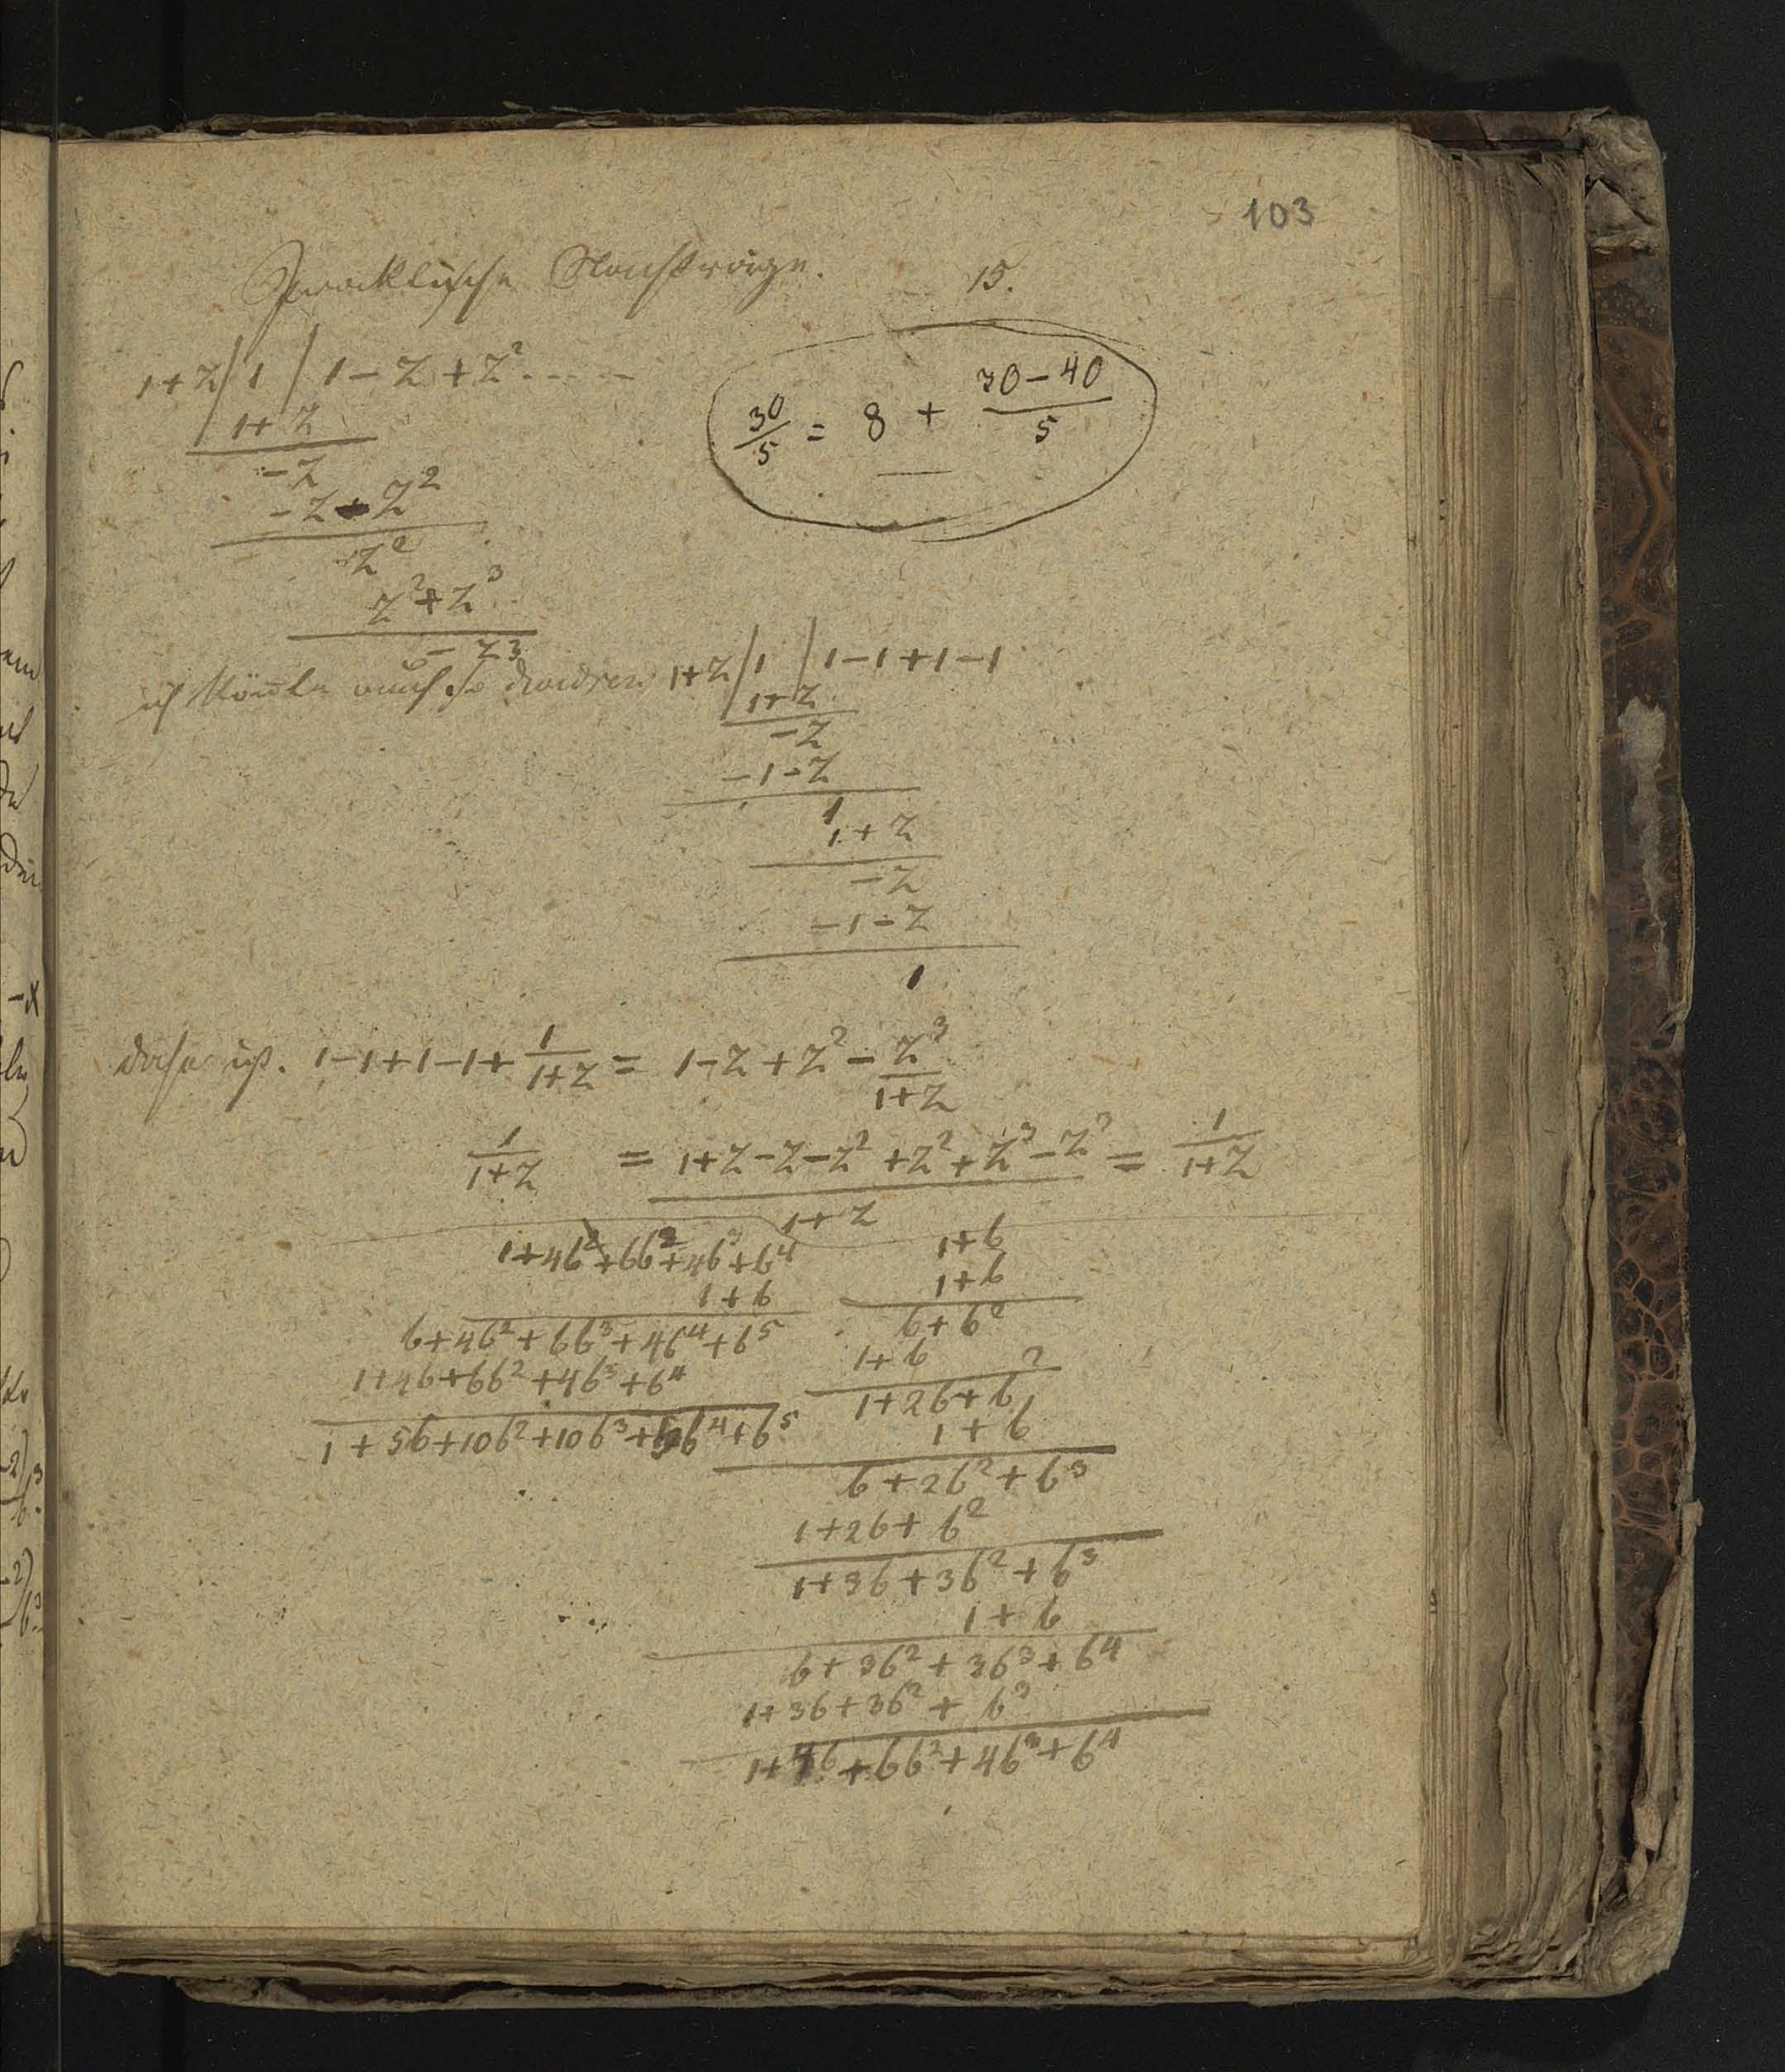 103
Practische Nachträge. 15.
1+z/1/1-z+z²....
1+z
-z
-z-z²
z²
z²+z³
-z³
30/5 = 8 + (30-40)/5
ich könnte auch so dividiren 1+z/1/1-1+1-1
1+z
-z
-1-z
1
1+z
-z
-1-z
1
daher ist. 1-1+1-1+1/(1+z) = 1-z+z²-z³/(1+z)
1/(1+z) = (1+z-z-z²+z²+z³-z³)/(1+z) = 1/(1+z)
1+4b²+6b²+4b³+b⁴
1+b
b+4b²+6b³+4b⁴+b⁵
1+4b+6b²+4b³+b⁴
1+5b+10b²+10b³+5b⁴+b⁵
1+b
1+b
b+b²
1+b
1+2b+b²
1+b
b+2b²+b³
1+2b+b²
1+3b+3b²+b³
1+b
b+3b²+3b³+b⁴
1+3b+3b²+b³
1+4b+6b²+4b³+b⁴